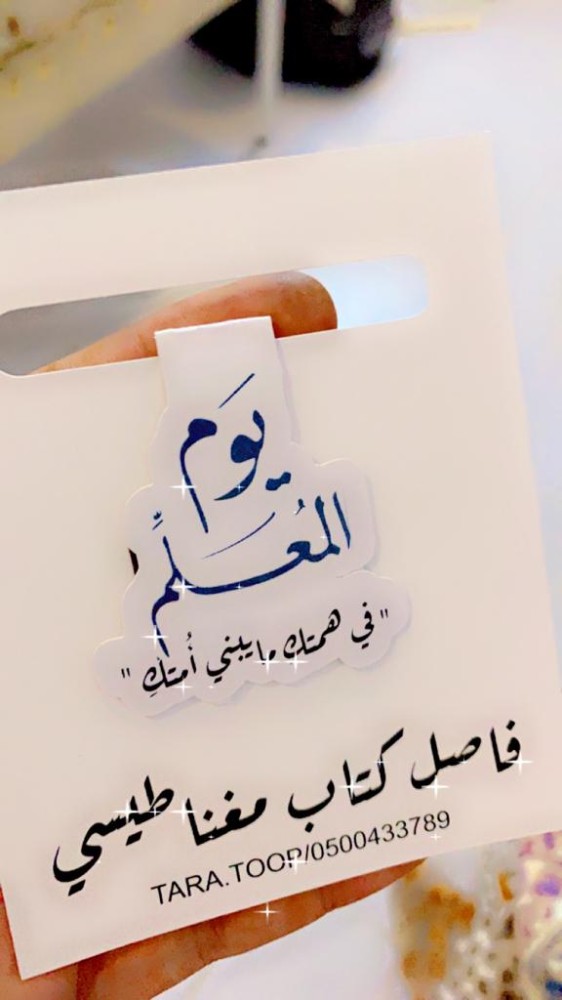 يَوم
المُعلِّم
"في همتك مايبني أُمتكِ"
فاصل كتاب مغناطيسي
TARA.TOOP/0500433789